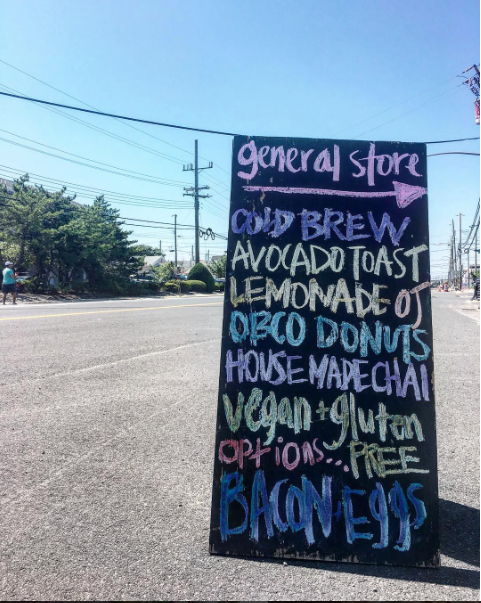 general store
COLD BREW
AVOCADO TOAST
LEMONADE OJ
OBCO DONUTS
HOUSE MADE CHAI
vegan + gluten
options... FREE
BACON, Eggs